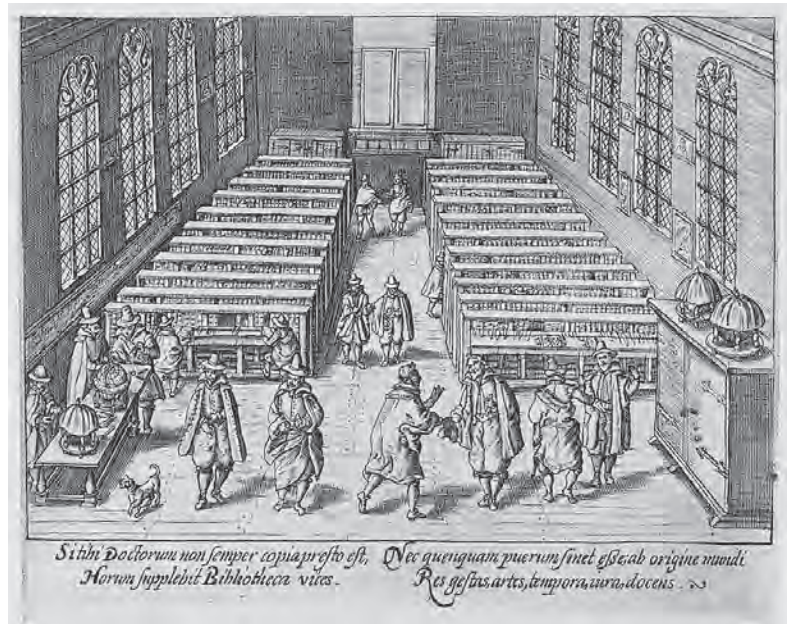 Si tibi Doctorum non semper copia presto est,
Horum supplebit Bibliotheca vices.
Nec quenquam puerum sinet esse, ab origine mundi
Res gestas, artes, tempora, iura, docens.